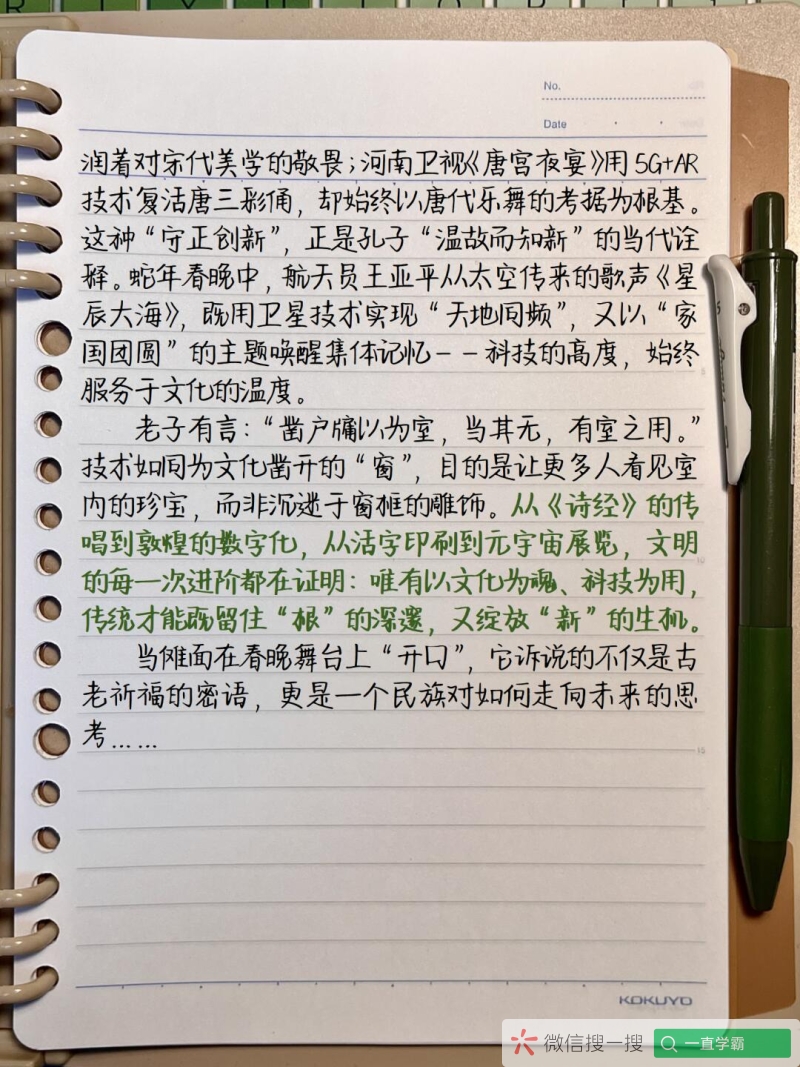 No.
Date
润着对宋代美学的敬畏；河南卫视《唐宫夜宴》用5G+AR
技术复活唐三彩俑，却始终以唐代乐舞的考据为根基。
这种“守正创新”，正是孔子“温故而知新”的当代诠
释。蛇年春晚中，航天员王亚平从太空传来的歌声《星
辰大海》，既用卫星技术实现“天地同频”，又以“家
国团圆”的主题唤醒集体记忆--科技的高度，始终
服务于文化的温度。
老子有言：“凿户牖以为室，当其无，有室之用。”
技术如同为文化凿开的“窗”，目的是让更多人看见室
内的珍宝，而非沉迷于窗框的雕饰。从《诗经》的传
唱到敦煌的数字化，从活字印刷到元宇宙展览，文明
的每一次进阶都在证明：唯有以文化为魂、科技为用，
传统才能既留住“根”的深邃，又绽放“新”的生机。
当傩面在春晚舞台上“开口”，它诉说的不仅是古
老祈福的密语，更是一个民族对如何走向未来的思
考……
KOKUYO
微信搜一搜
一直学霸